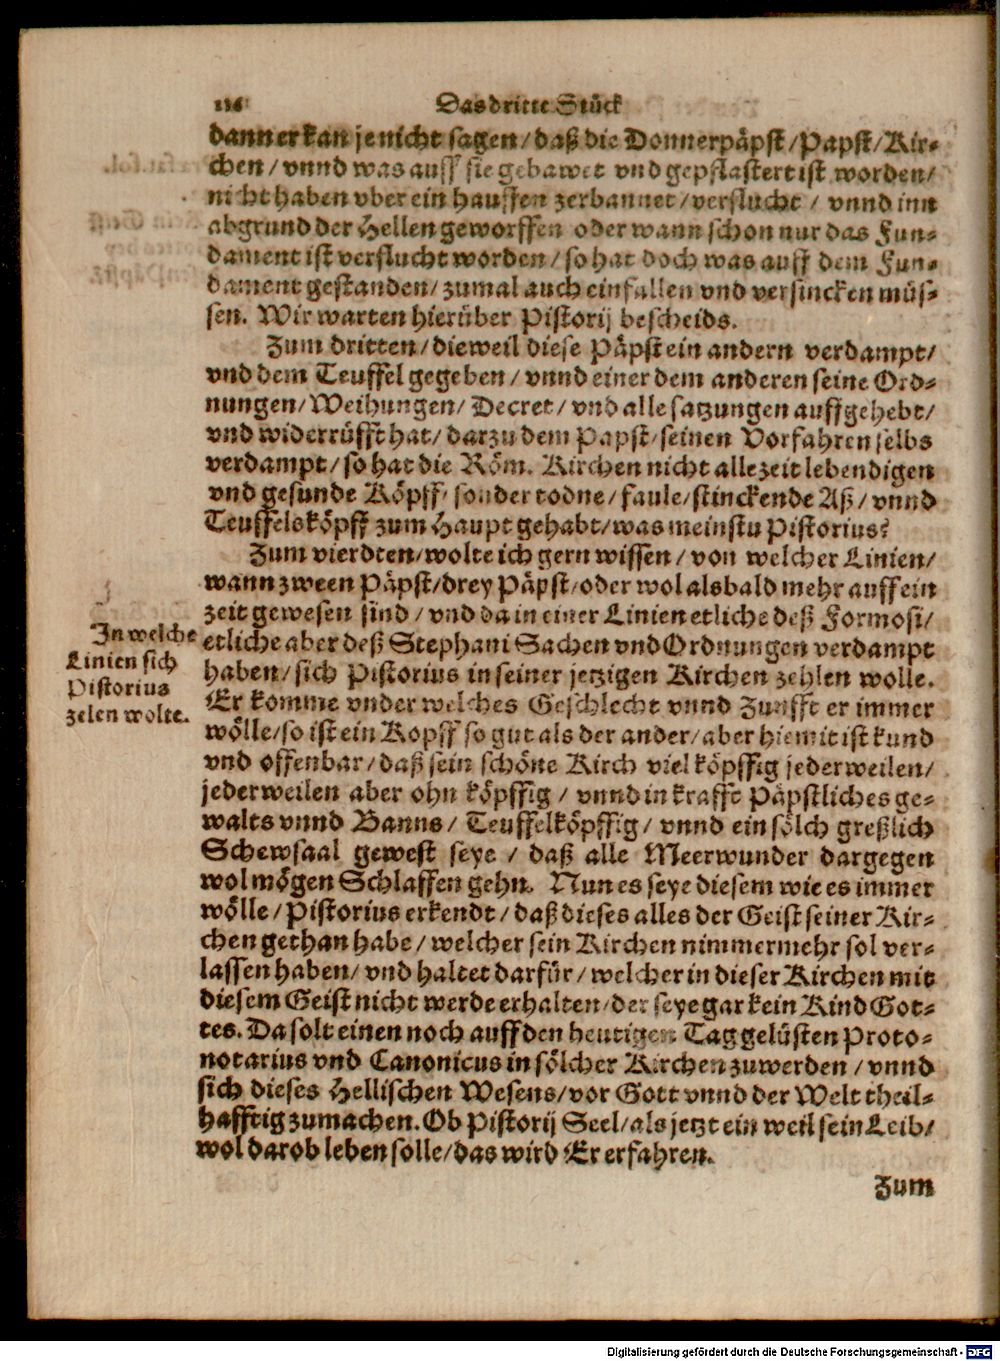 116 Das dritte Stück
dann er kan je nicht sagen / daß die Donnerpäpst / Papst / Kir-
chen / vnnd was auff sie gebawet vnd gepflastert ist worden /
nicht haben vber ein hauffen zerbannet / verflucht / vnnd inn
abgrund der Hellen geworffen oder wann schon nur das Fun-
dament ist verflucht worden / so hat doch was auff dem Fun-
dament gestanden / zumal auch einfallen vnd versincken müs-
sen. Wir warten hierüber Pistorij bescheids.
Zum dritten / dieweil diese Päpst ein andern verdampt /
vnd dem Teuffel gegeben / vnnd einer dem anderen seine Ord-
nungen / Weihungen / Decret / vnd alle satzungen auffgehebt /
vnd widerrüfft hat / darzu dem Papst / seinen Vorfahren selbs
verdampt / so hat die Röm. Kirchen nicht allezeit lebendigen
vnd gesunde Köpff / sonder todne / faule / stinckende Aß / vnnd
Teuffelsköpff zum Haupt gehabt / was meinstu Pistorius?
Zum vierdten / wolte ich gern wissen / von welcher Linien /
wann zween Päpst / drey Päpst / oder wol alsbald mehr auff ein
zeit gewesen sind / vnd da in einer Linien etliche deß Formosi /
etliche aber deß Stephani Sachen vnd Ordnungen verdampt
haben / sich Pistorius in seiner jetzigen Kirchen zehlen wolle.
Er komme vnder welches Geschlecht vnnd Zunfft er immer
wölle / so ist ein Kopff so gut als der ander / aber hiemit ist kund
vnd offenbar / daß sein schöne Kirch viel köpffig jederweilen /
jederweilen aber ohn köpffig / vnnd in krafft Päpstliches ge-
walts vnnd Banns / Teuffelköpffig / vnnd ein sölch greßlich
Schewsaal gewest seye / daß alle Meerwunder dargegen
wol mögen Schlaffen gehn. Nun es seye diesem wie es immer
wölle / Pistorius erkendt / daß dieses alles der Geist seiner Kir-
chen gethan habe / welcher sein Kirchen nimmermehr sol ver-
lassen haben / vnd haltet darfür / welcher in dieser Kirchen mit
diesem Geist nicht werde erhalten / der seye gar kein Kind Got-
tes. Da solt einen noch auff den heutigen Tag gelüsten Proto-
notarius vnd Canonicus in sölcher Kirchen zuwerden / vnnd
sich dieses Hellischen Wesens / vor Gott vnnd der Welt theil-
hafftig zumachen. Ob Pistorij Seel / als jetzt ein weil sein Leib /
wol darob leben solle / das wird Er erfahren.
Zum
In welche
Linien sich
Pistorius
zelen wolte.
Digitalisierung gefördert durch die Deutsche Forschungsgemeinschaft - DFG